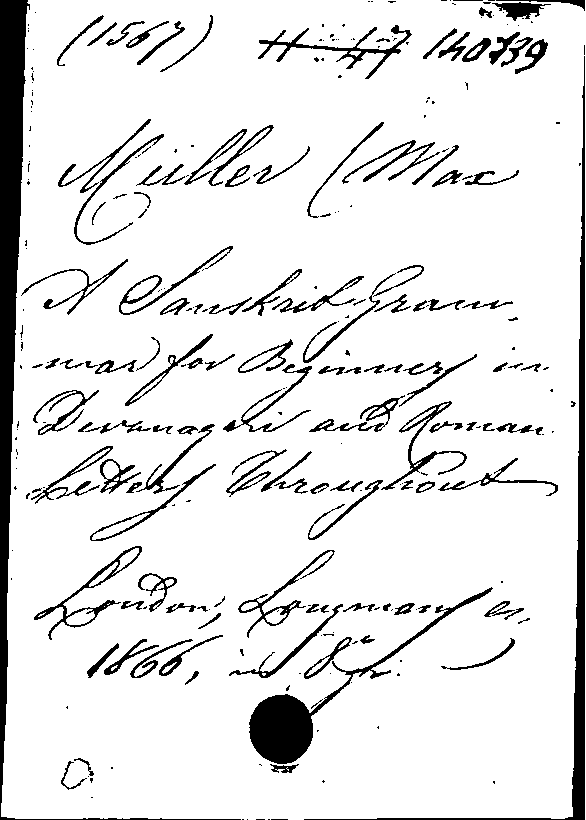 (1567) H 47 140739
Müller (Max
A Sanskrit Gram-
mar for Beginners in
Devanagari and Roman
Letters Throughout
London, Longmans
1866, in 8°